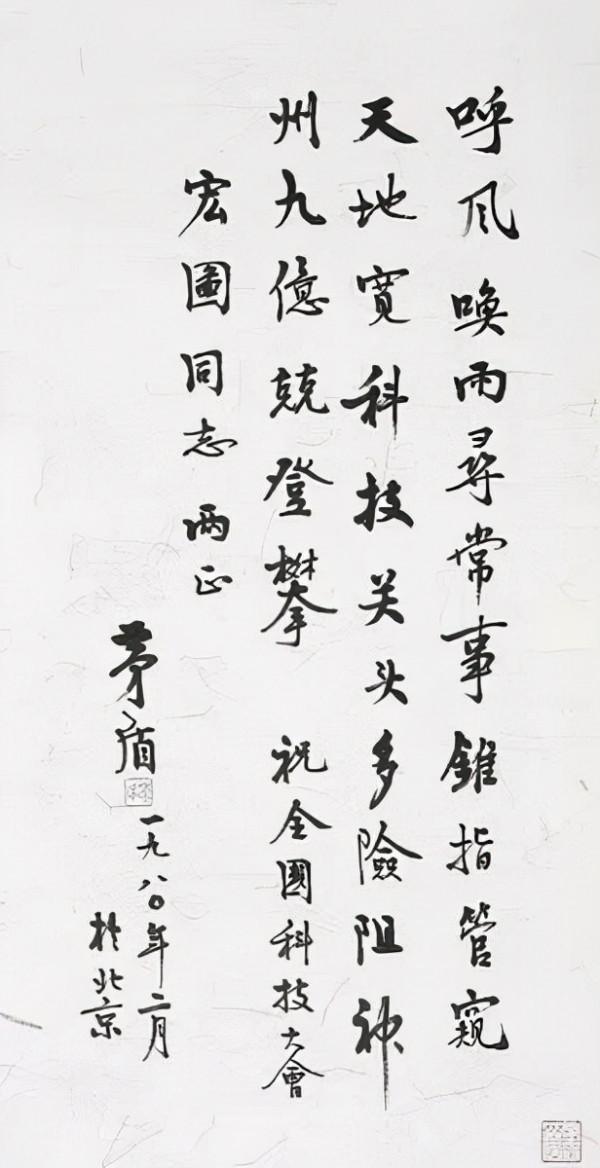 呼风喚雨尋常事錐指管窺
天地寬科技关头多險阻神
州九億競登攀 祝全國科技大會
宏圖同志兩正
茅盾
一九八〇年二月
於北京